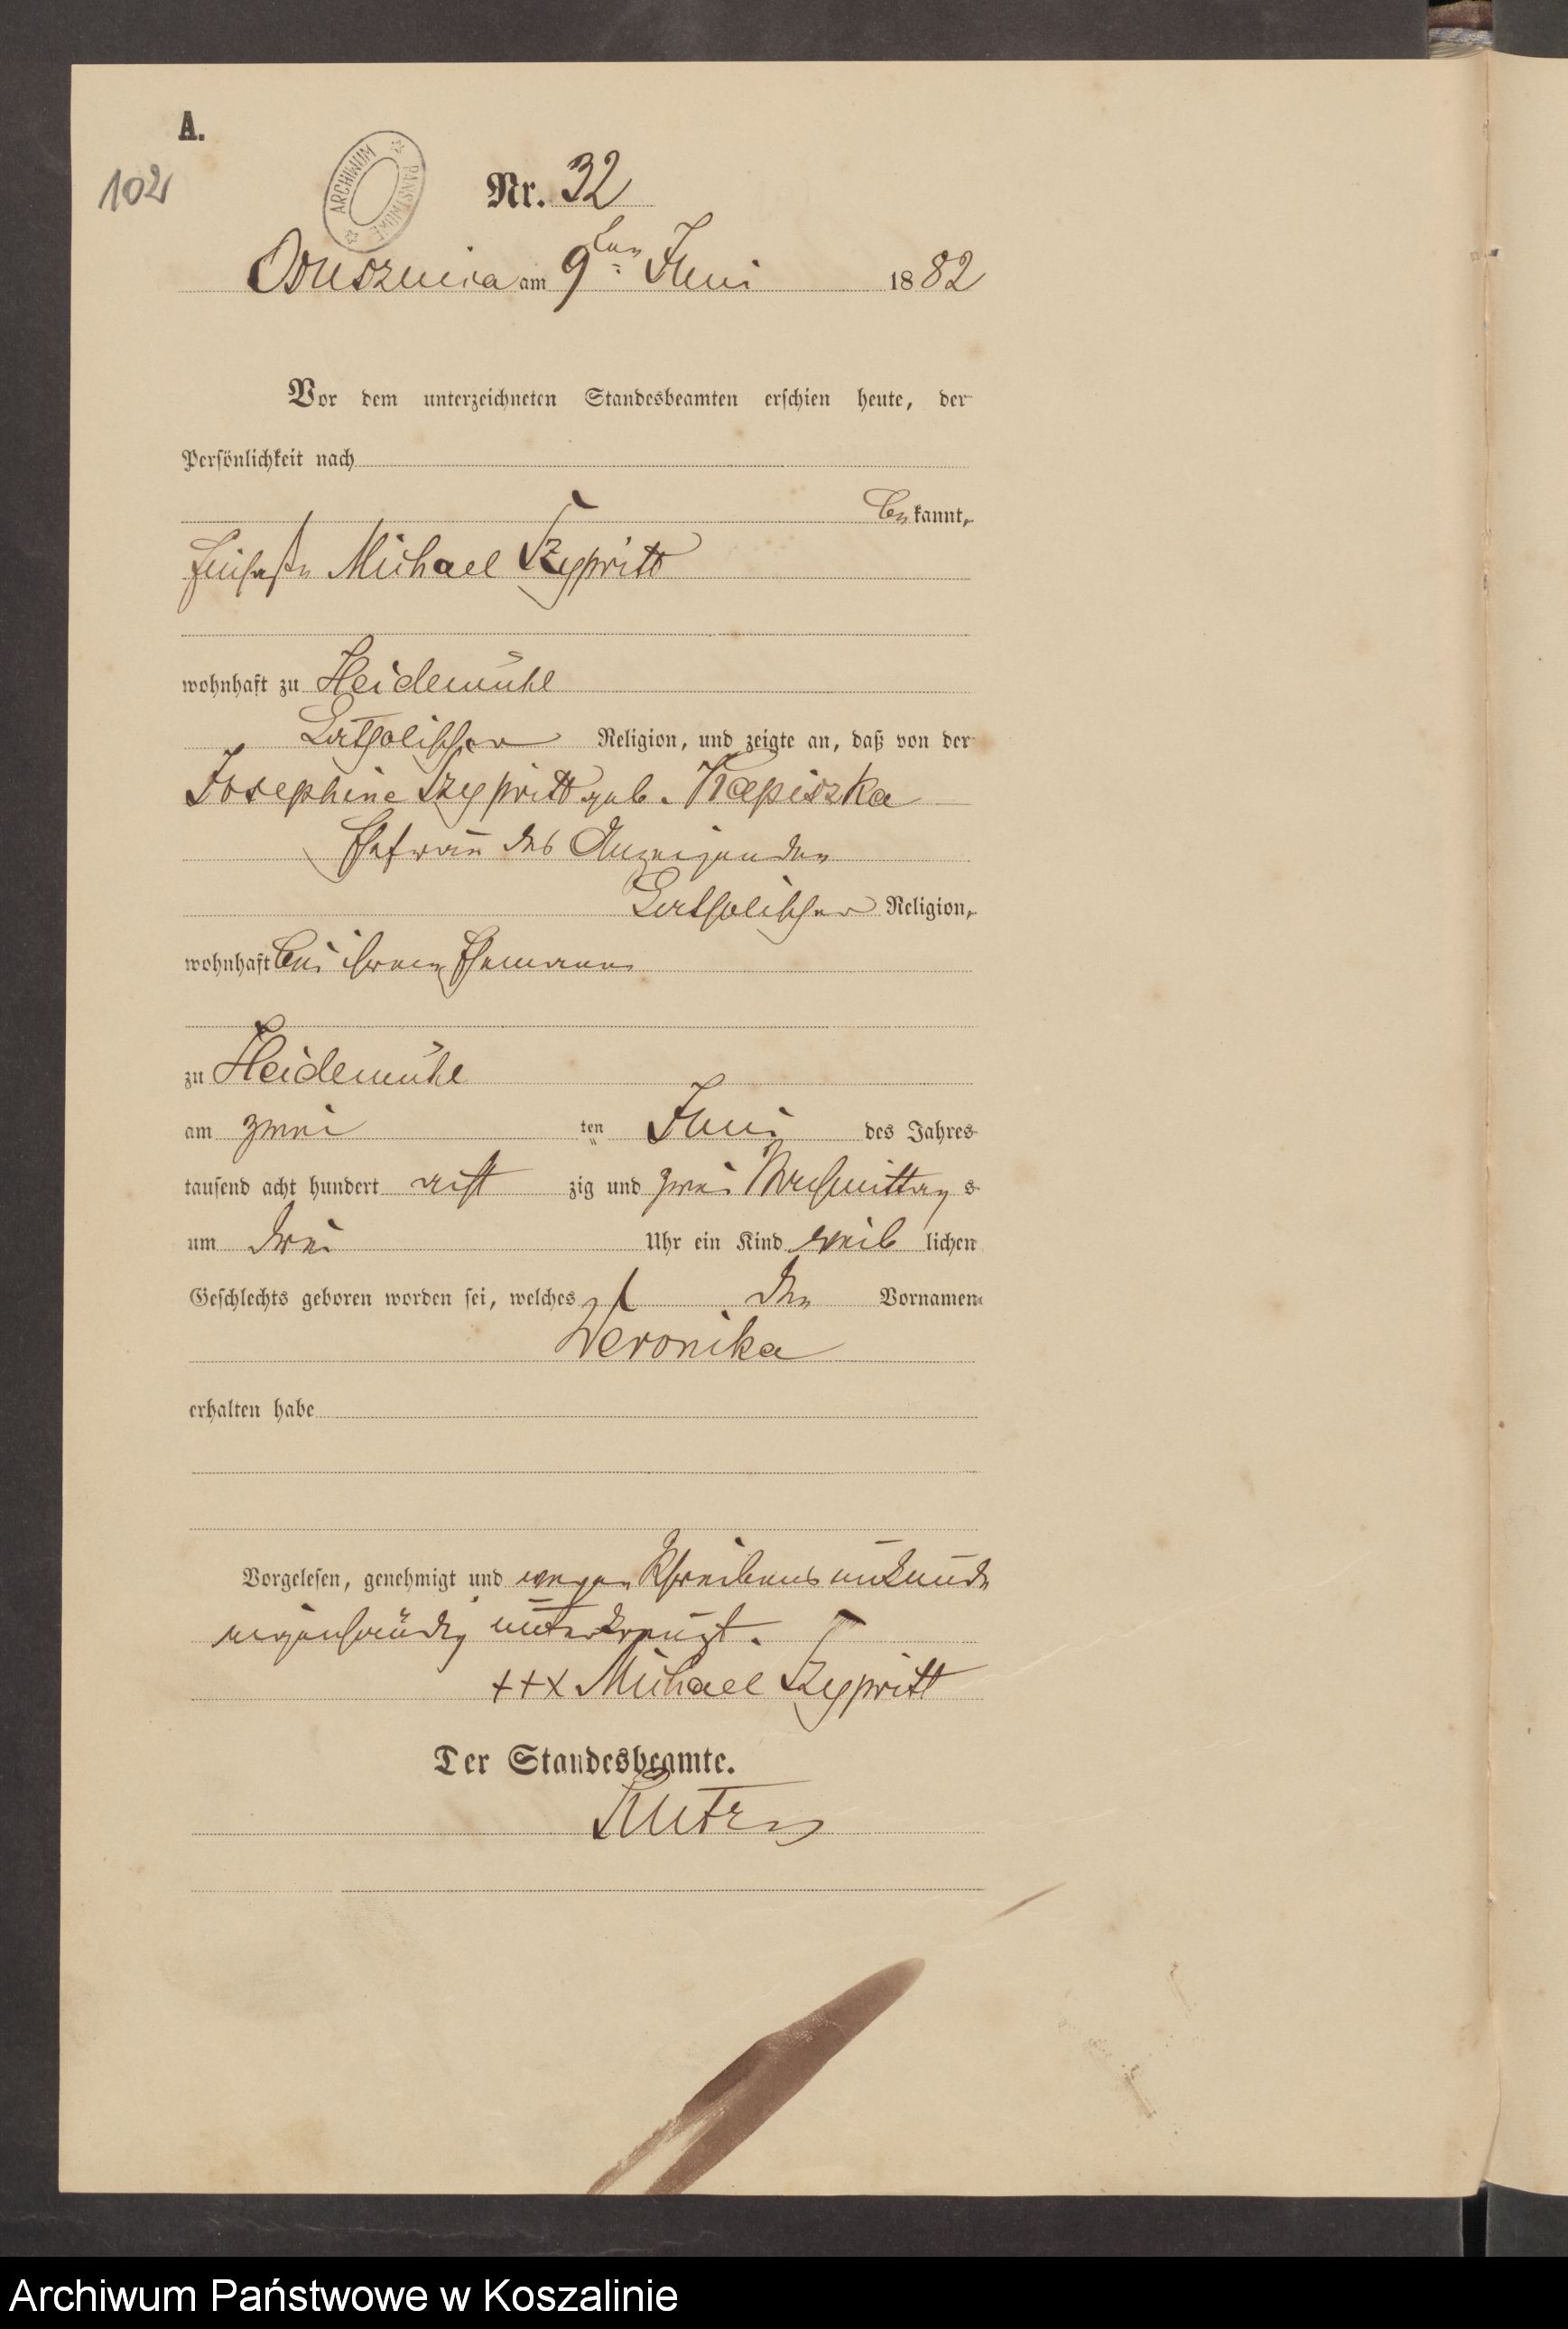 A.
102
ARCHIWUM PAŃSTWOWE
Nr. 32
Ossusznica am 9ten Juni 1882
Vor dem unterzeichneten Standesbeamten erschien heute, der
Persönlichkeit nach
bekannt,
Einsaße Michael Szypritt
wohnhaft zu Heidemühl
katholischer Religion, und zeigte an, daß von der
Josephine Szypritt geb. Kapiszka
Ehefrau des Anzeigenden
katholischer Religion,
wohnhaft bei ihrem Ehemann
zu Heidemühl
am zwei ten Juni des Jahres
tausend acht hundert acht zig und zwei Nachmittag s
um drei Uhr ein Kind weib lichen
Geschlechts geboren worden sei, welches den Vornamen
Veronika
erhalten habe
Vorgelesen, genehmigt und wegen Schreibensunkunde
eigenhändig unterkreuzt.
+++ Michael Szypritt
Der Standesbeamte.
Archiwum Państwowe w Koszalinie